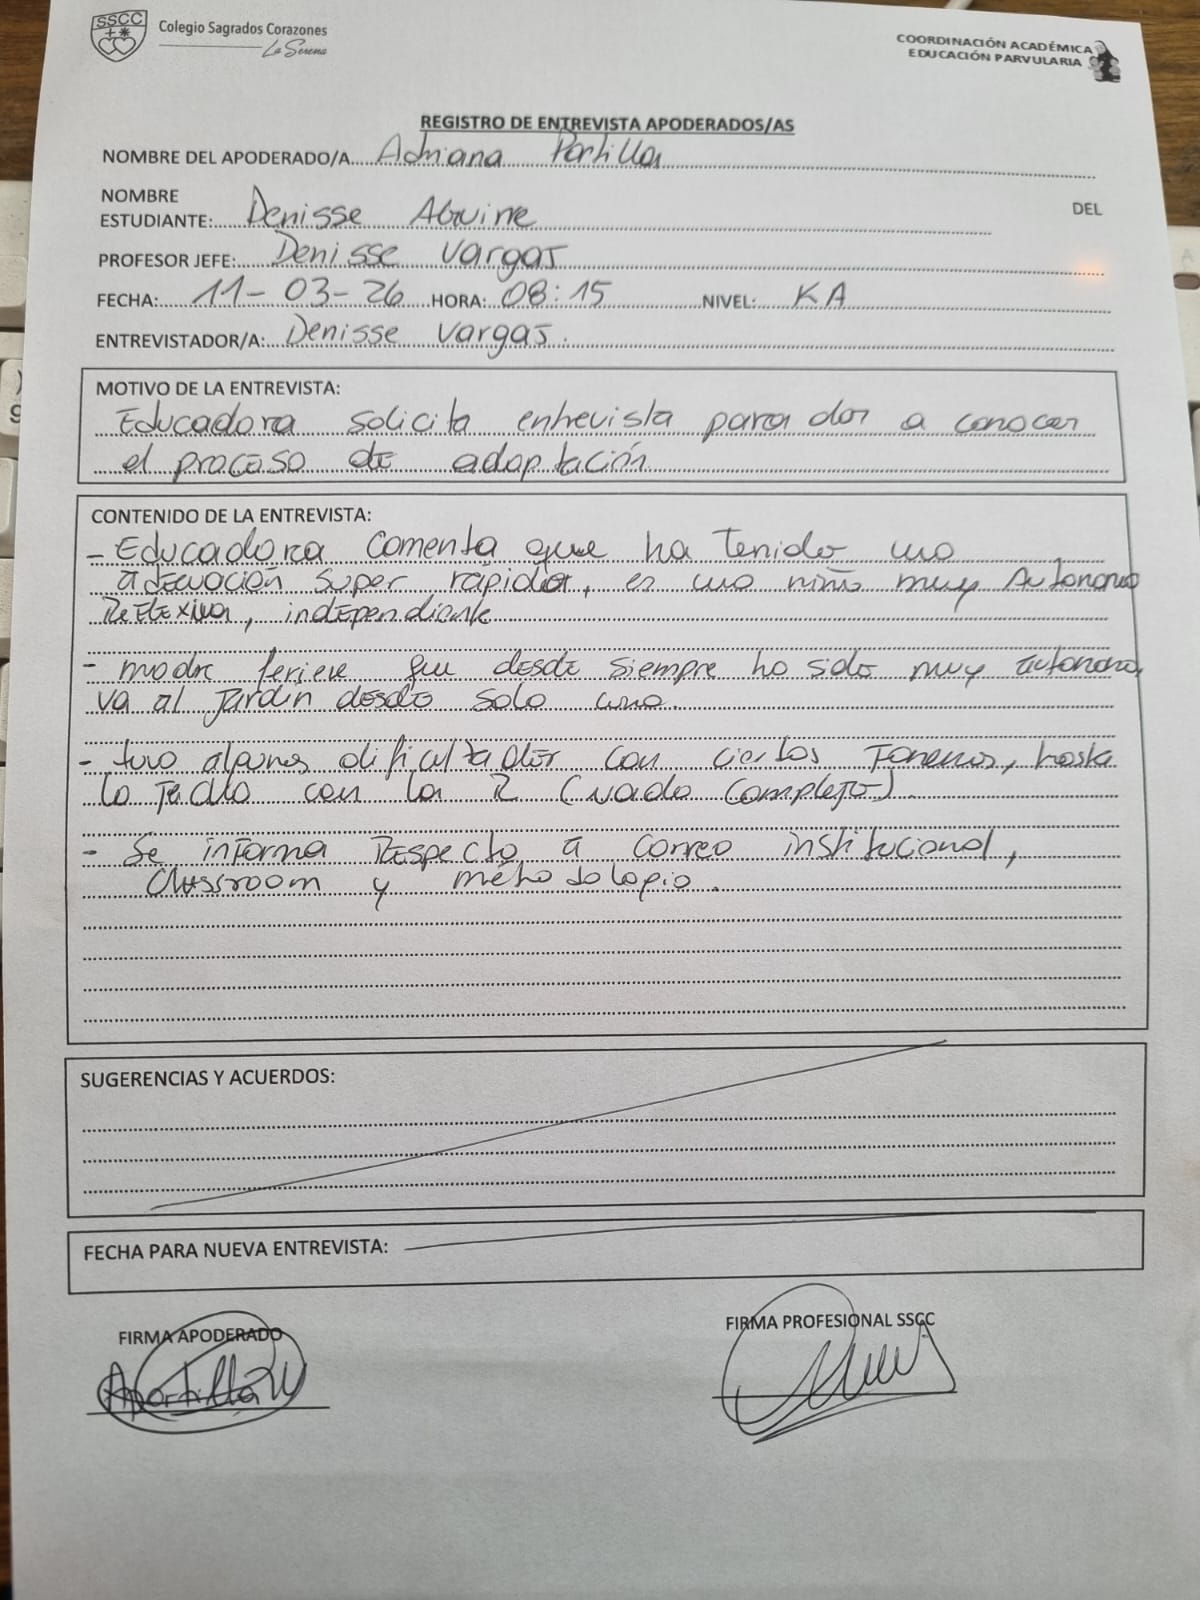 SSCC
Colegio Sagrados Corazones
La Serena
COORDINACIÓN ACADÉMICA
EDUCACIÓN PARVULARIA
REGISTRO DE ENTREVISTA APODERADOS/AS
NOMBRE DEL APODERADO/A Adriana Portilla
NOMBRE DEL
ESTUDIANTE: Denisse Aguirre
PROFESOR JEFE: Denisse Vargas
FECHA: 11-03-26 HORA: 08:15 NIVEL: KA
ENTREVISTADOR/A: Denisse Vargas.
MOTIVO DE LA ENTREVISTA:
Educadora solicita entrevista para dar a conocer
el proceso de adaptación
CONTENIDO DE LA ENTREVISTA:
- Educadora comenta que ha tenido una
adecuación super rápida, es una niña muy autonoma
reflexiva, independiente
- madre que desde siempre ha sido muy autonoma,
va al jardin desde solo uno.
- tuvo algunas dificultades con ciertos fonemas, hasta
con la R
- Se informa respecto a correo institucional,
classroom y metodologia.
SUGERENCIAS Y ACUERDOS:
FECHA PARA NUEVA ENTREVISTA:
FIRMA APODERADO
FIRMA PROFESIONAL SSCC